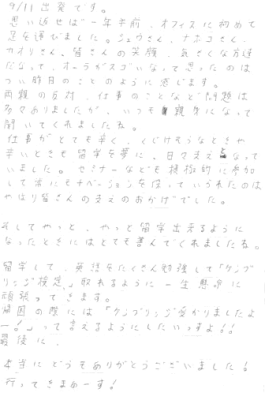 9/11 出発です。
思い返せば一年半前、オフィスに初めて
足を運びました。シュウさん、ナオコさん、
カオリさん。皆さんの笑顔、気さくな方達
だなって、オーラがスゴいなって思ったのは
つい昨日のことのように感じます。
両親の反対、仕事のことなど問題は
多々ありましたが、いつも親身になって
聞いてくれましたね。
仕事がとても辛く、くじけそうなときや
辛いときも留学を夢に、日々支えなって
いました。セミナーなども積極的に参加
して常にモチベーションを保っていられたのは
やはり皆さんの支えのおかげでした。
そしてやっと、やっと留学出来るように
なったときにはとても喜んでくれましたね。
留学して、英語をたくさん勉強して「ケンブ
リッジ検定」取れるように一生懸命に
頑張ってきます。
帰国の際には「ケンブリッジ受かりましたよ
ー!」って言えるようにしたいっすよ!!
最後に、
本当にどうもありがとうございました!
行ってきまぁーす!